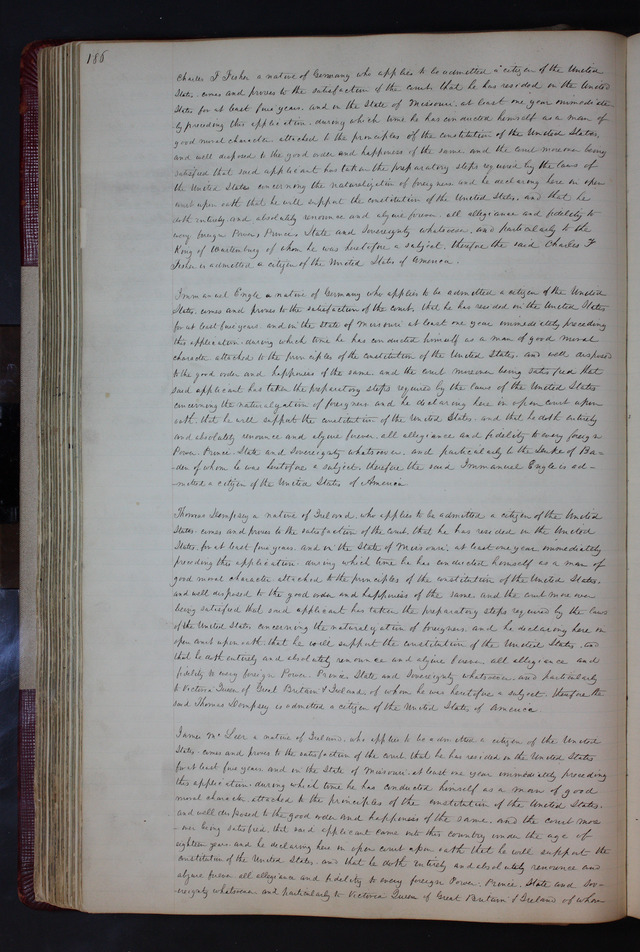 186
Charles F Fisher a native of Germany who applies to be admitted a citizen of the United
States. comes and proves to the satisfaction of the court that he has resided in the United
States for at least five years. and in the State of Missouri at least one year immediate
ly preceding this application. during which time he has conducted himself as a man of
good moral character. attached to the principles of the constitution of the United States,
and well disposed to the good order and happiness of the same and the court moreover being
satisfied that said applicant has taken the preparatory steps required by the laws of
the United States concerning the naturalization of foreigners and he declaring here in open
court upon oath that he will support the constitution of the United States. and that he
doth entirely and absolutely renounce and abjure forever. all allegiance and fidelity to
every foreign Power, Prince, State and Sovereignty whatsoever, and particularly to the
King of Wurtenburg of whom he was heretofore a subject. therefore the said Charles F
Fisher is admitted a citizen of the United States of America.
Immanuel Engle a native of Germany who applies to be admitted a citizen of the United
States. comes and proves to the satisfaction of the court, that he has resided in the United States
for at least five years. and in the state of Missouri at least one year immediately preceding
this application. during which time he has conducted himself as a man of good moral
character attached to the principles of the constitution of the United States, and well disposed
to the good order and happiness of the same. and the court moreover being satisfied that
said applicant has taken the preparatory steps required by the laws of the United States
concerning the naturalization of foreigners and he declaring here in open court upon
oath. that he will support the constitution of the United States. and that he doth entirely
and absolutely renounce and abjure forever. all allegiance and fidelity to every foreign
Power. Prince. State and Sovereignty whatsoever. and particularly to the Duke of Ba-
den of whom he was heretofore a subject, therefore the said Immanuel Engle is ad-
mitted a citizen of the United States of America
Thomas Dempsey a native of Ireland. who applies to be admitted a citizen of the United
States. comes and proves to the satisfaction of the court, that he has resided in the United
States. for at least five years. and in the State of Missouri. at least one year immediately
preceding this application. during which time he has conducted himself as a man of
good moral character attached to the principles of the constitution of the United States.
and well disposed to the good order and happiness of the same. and the court moreover
being satisfied that said applicant has taken the preparatory steps required by the laws
of the United States, concerning the naturalization of foreigners. and he declaring here in
open court upon oath. that he will support the constitution of the United States. and
that he doth entirely and absolutely renounce and abjure forever all allegiance and
fidelity to every foreign Power. Prince. State and Sovereignty whatsoever. and particularly
to Victoria Queen of Great Britain & Ireland. of whom he was heretofore a subject. therefore the
said Thomas Dempsey is admitted a citizen of the United States of America.
James Mc a native of Ireland. who applies to be admitted a citizen of the United
States. comes and proves to the satisfaction of the court that he has resided in the United States
for at least five years. and in the State of Missouri. at least one year immediately preceding
this application. during which time he has conducted himself as a man of good
moral character. attached to the principles of the constitution of the United States.
and well disposed to the good order and happiness of the same. and the court more
-over being satisfied, that said applicant came into this country under the age of
eighteen years and he declaring here in open court upon oath that he will support the
constitution of the United States. and that he doth entirely and absolutely renounce and
abjure forever. all allegiance and fidelity to every foreign Power. Prince. State and Sov-
ereignty whatsoever. and particularly to Victoria Queen of Great Britain & Ireland of whom